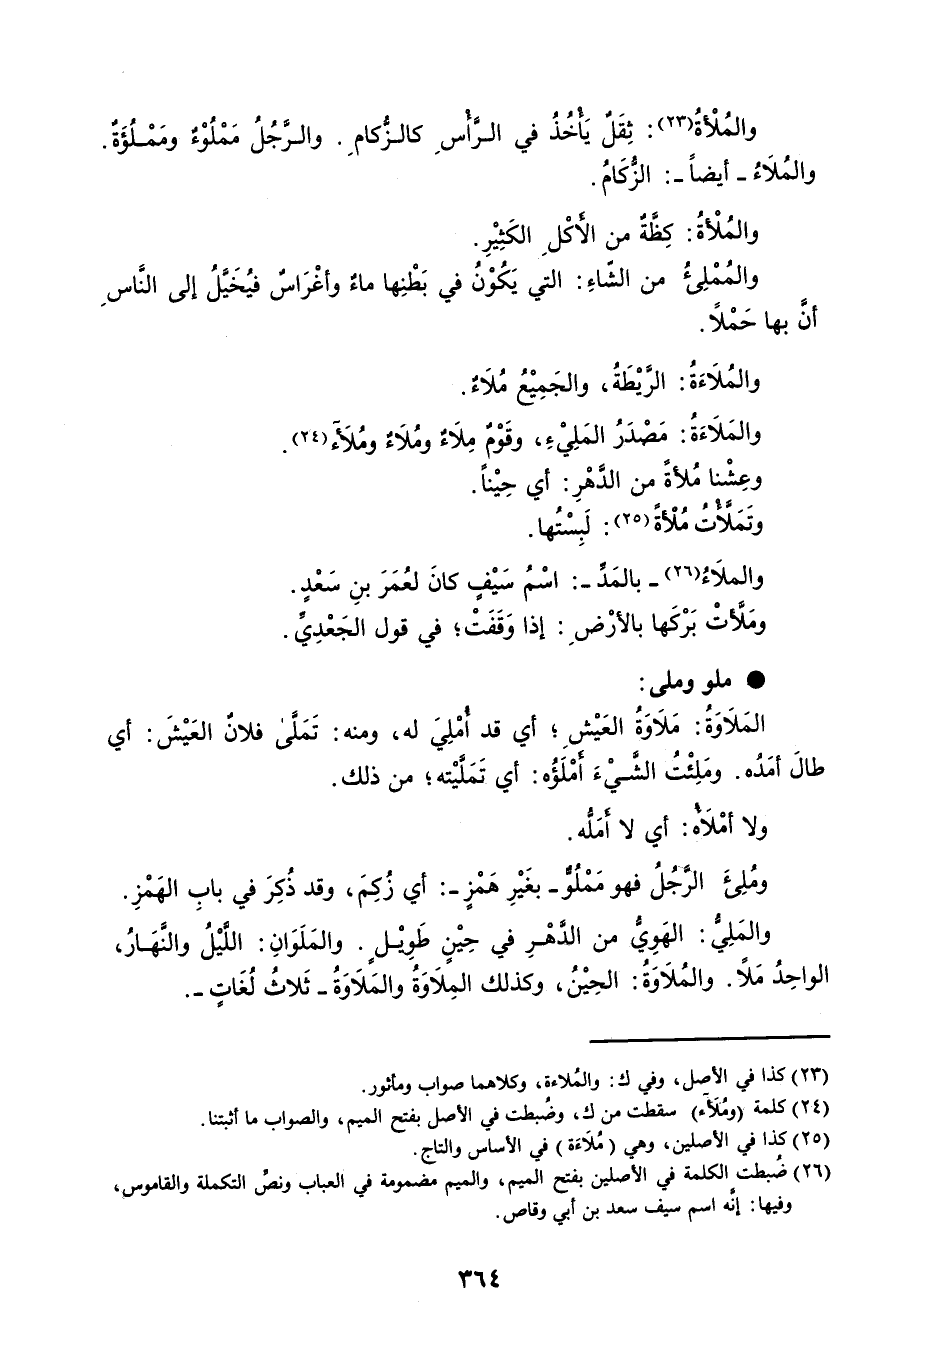 والمُلْأةُ(٢٣): ثِقَلٌ يَأْخُذُ في الرَّأْسِ كالزُّكامِ. والرَّجُلُ مَمْلُوْءٌ ومَمْلُؤَةٌ.
والمُلَاءُ ـ أيضاً ـ: الزُّكَامُ.
والمُلْأةُ: كِظَّةٌ من الأَكْلِ الكَثِيْرِ.
والمُمْلِئُ من الشّاءِ: التي يَكُوْنُ في بَطْنِها ماءٌ وأغْرَاسٌ فيُخَيَّلُ إلى النَّاسِ
أنَّ بها حَمْلًا.
والمُلَاءَةُ: الرَّيْطَةُ، والجَمِيْعُ مُلَاءٌ.
والمَلَاءَةُ: مَصْدَرُ المَلِيْءِ، وقَوْمٌ مِلَاءٌ ومُلَاءٌ ومُلَآء(٢٤).
وعِشْنا مُلأةً من الدَّهْرِ: أي حِيْناً.
وتَمَلَّأْتُ مُلْأةً(٢٥): لَبِسْتُها.
والملَاءُ(٢٦) ـ بالمَدِّ ـ: اسْمُ سَيْفٍ كانَ لعُمَرَ بنِ سَعْدٍ.
ومَلَّأتْ بَرْكَها بالأرْضِ: إذا وَقَفَتْ؛ في قول الجَعْدِيِّ.
● ملو وملى:
المَلَاوَةُ: مَلَاوَةُ العَيْشِ؛ أي قد أُمْلِيَ له، ومنه: تَمَلَّىٰ فلانٌ العَيْشَ: أي
طالَ أمَدُه. ومَلِئْتُ الشَّيْءَ أَمْلَؤُه: أي تَمَلَّيْته؛ من ذلك.
ولا أمْلَأُه: أي لا أَمَلُّه.
ومُلِئَ الرَّجُلُ فهو مَمْلُوٌّ ـ بغَيْرِ هَمْزٍ ـ: أي زُكِمَ، وقد ذُكِرَ في بابِ الهَمْزِ.
والمَلِيُّ: الهَوِيُّ من الدَّهْرِ في حِيْنٍ طَوِيْلٍ. والمَلَوَانِ: اللَّيْلُ والنَّهَارُ،
الواحِدُ مَلًا. والمُلَاوَةُ: الحِيْنُ، وكذلك المِلَاوَةُ والمَلَاوَةُ ـ ثَلاثُ لُغَاتٍ ـ.
(٢٣) كذا في الأصل، وفي ك: والمُلاءة، وكلاهما صواب ومأثور.
(٢٤) كلمة (ومُلَآء) سقطت من ك، وضُبطت في الأصل بفتح الميم، والصواب ما أثبتنا.
(٢٥) كذا في الأصلين، وهي (مُلَاءَة) في الأساس والتاج.
(٢٦) ضُبطت الكلمة في الأصلين بفتح الميم، والميم مضمومة في العباب ونصُّ التكملة والقاموس،
وفيها: إنَّه اسم سيف سعد بن أبي وقاص.
٣٦٤